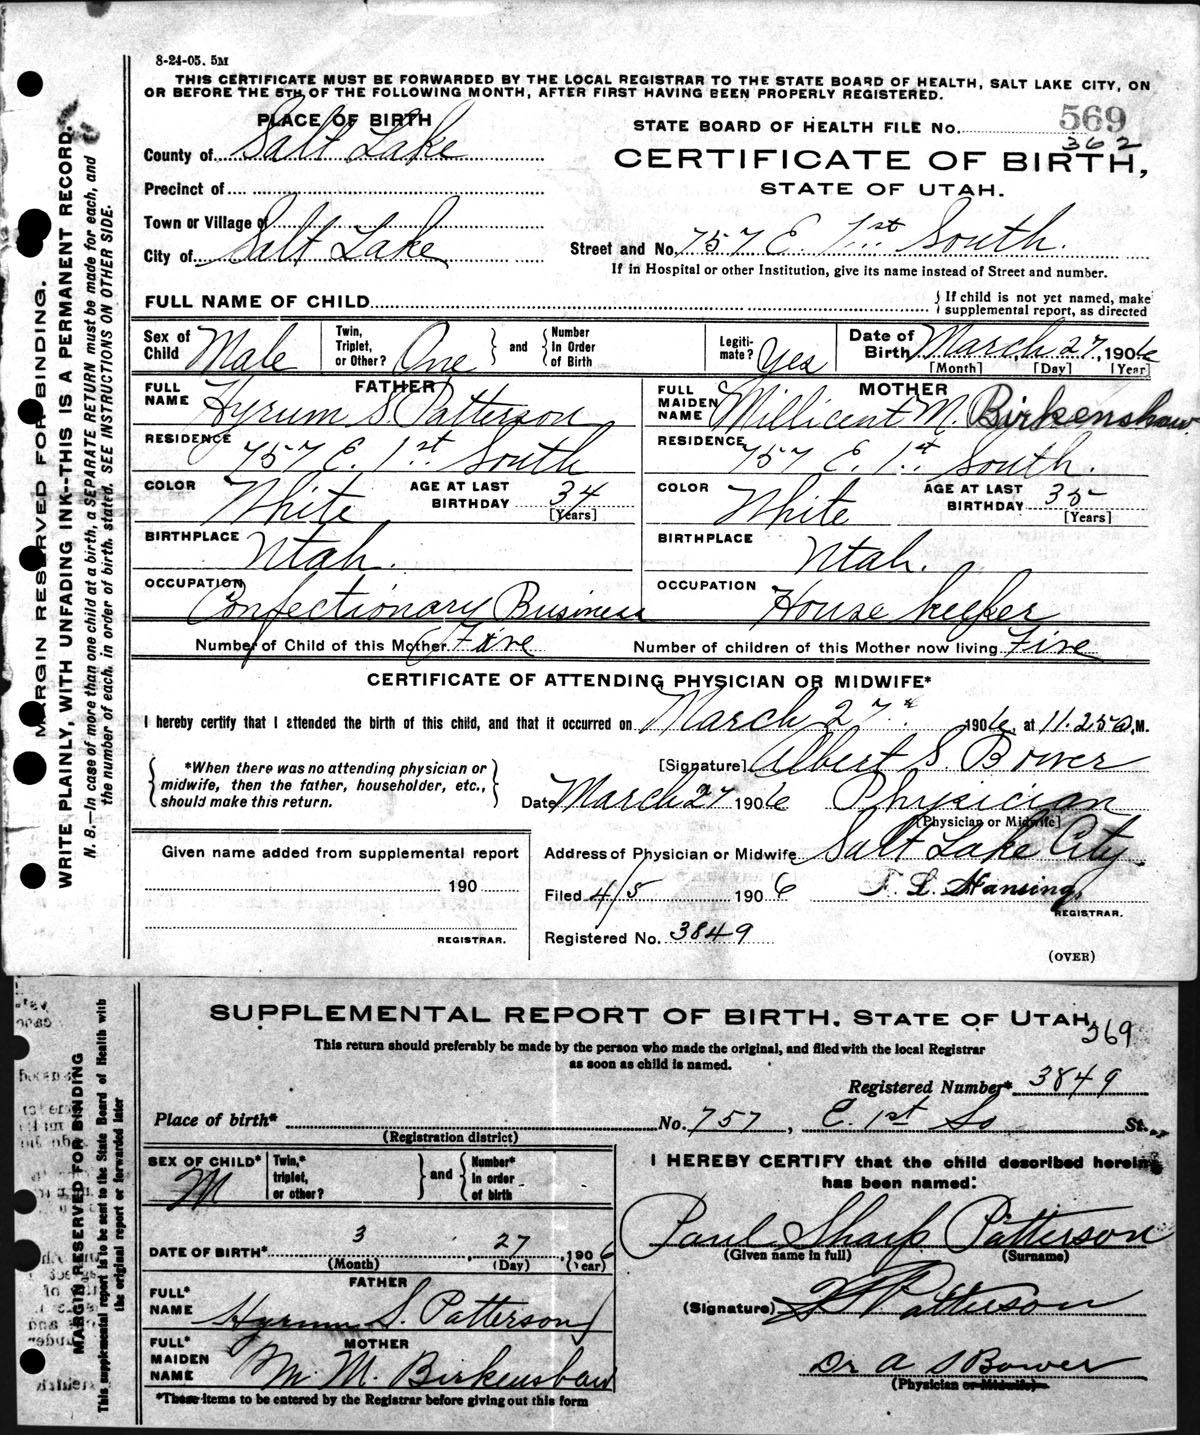 8-24-05. 5M
THIS CERTIFICATE MUST BE FORWARDED BY THE LOCAL REGISTRAR TO THE STATE BOARD OF HEALTH, SALT LAKE CITY, ON
OR BEFORE THE 5TH OF THE FOLLOWING MONTH, AFTER FIRST HAVING BEEN PROPERLY REGISTERED.
MARGIN RESERVED FOR BINDING.
WRITE PLAINLY, WITH UNFADING INK--THIS IS A PERMANENT RECORD.
N. B.—In case of more than one child at a birth, a SEPARATE RETURN must be made for each, and
the number of each, in order of birth, stated. SEE INSTRUCTIONS ON OTHER SIDE.
PLACE OF BIRTH
County of Salt Lake
Precinct of
Town or Village of
City of Salt Lake
STATE BOARD OF HEALTH FILE No. 569
362
CERTIFICATE OF BIRTH,
STATE OF UTAH.
Street and No. 757 E. 1st South.
If in Hospital or other Institution, give its name instead of Street and number.
FULL NAME OF CHILD
{If child is not yet named, make
supplemental report, as directed
Sex of Child Male
Twin, Triplet, or Other? One } and { Number In Order of Birth
Legiti-mate? Yes
Date of Birth March 27, 1906
[Month] [Day] [Year]
FATHER
FULL NAME Hyrum S. Patterson
RESIDENCE 757 E. 1st South
COLOR White AGE AT LAST BIRTHDAY 34 [Years]
BIRTHPLACE Utah.
OCCUPATION Confectionary Business
MOTHER
FULL MAIDEN NAME Millicent M. Birkenshaw
RESIDENCE 757 E. 1st South.
COLOR White AGE AT LAST BIRTHDAY 35 [Years]
BIRTHPLACE Utah.
OCCUPATION House keeper
Number of Child of this Mother Five Number of children of this Mother now living Five
CERTIFICATE OF ATTENDING PHYSICIAN OR MIDWIFE*
I hereby certify that I attended the birth of this child, and that it occurred on March 27 1906, at 11.25 M.
{ *When there was no attending physician or
midwife, then the father, householder, etc.,
should make this return. }
[Signature] Albert S. Bower
Date March 27 1906 Physician
[Physician or Midwife]
Given name added from supplemental report
190
REGISTRAR.
Address of Physician or Midwife Salt Lake City.
Filed 4/5 1906 T. L. Hansing,
REGISTRAR.
Registered No. 3849
(OVER)
MARGIN RESERVED FOR BINDING
This supplemental report is to be sent to the State Board of Health with
the original report or forwarded later
SUPPLEMENTAL REPORT OF BIRTH, STATE OF UTAH
369
This return should preferably be made by the person who made the original, and filed with the local Registrar
as soon as child is named.
Registered Number* 3849
Place of birth* No. 757, E. 1st So St.
(Registration district)
SEX OF CHILD* M
Twin,* triplet, or other? } and { Number* in order of birth
DATE OF BIRTH* 3, 27, 1906
(Month) (Day) (Year)
FATHER
FULL* NAME Hyrum S. Patterson
MOTHER
FULL* MAIDEN NAME M. M. Birkenshaw
*These items to be entered by the Registrar before giving out this form
I HEREBY CERTIFY that the child described herein
has been named:
Paul Sharp Patterson
(Given name in full) (Surname)
(Signature) Patterson
Dr A S Bower
(Physician or Midwife)